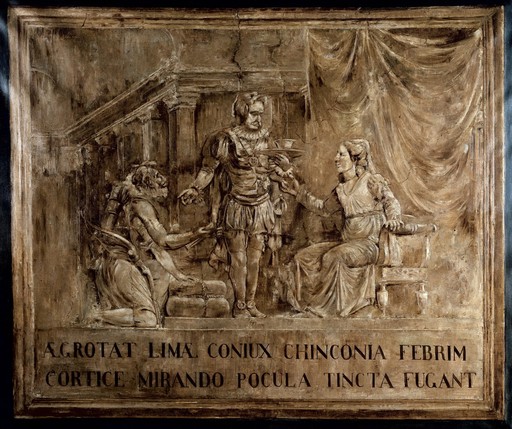 ÆGROTAT LIMÆ CONIUX CHINCONIA FEBRIM
CORTICE MIRANDO POCULA TINCTA FUGANT